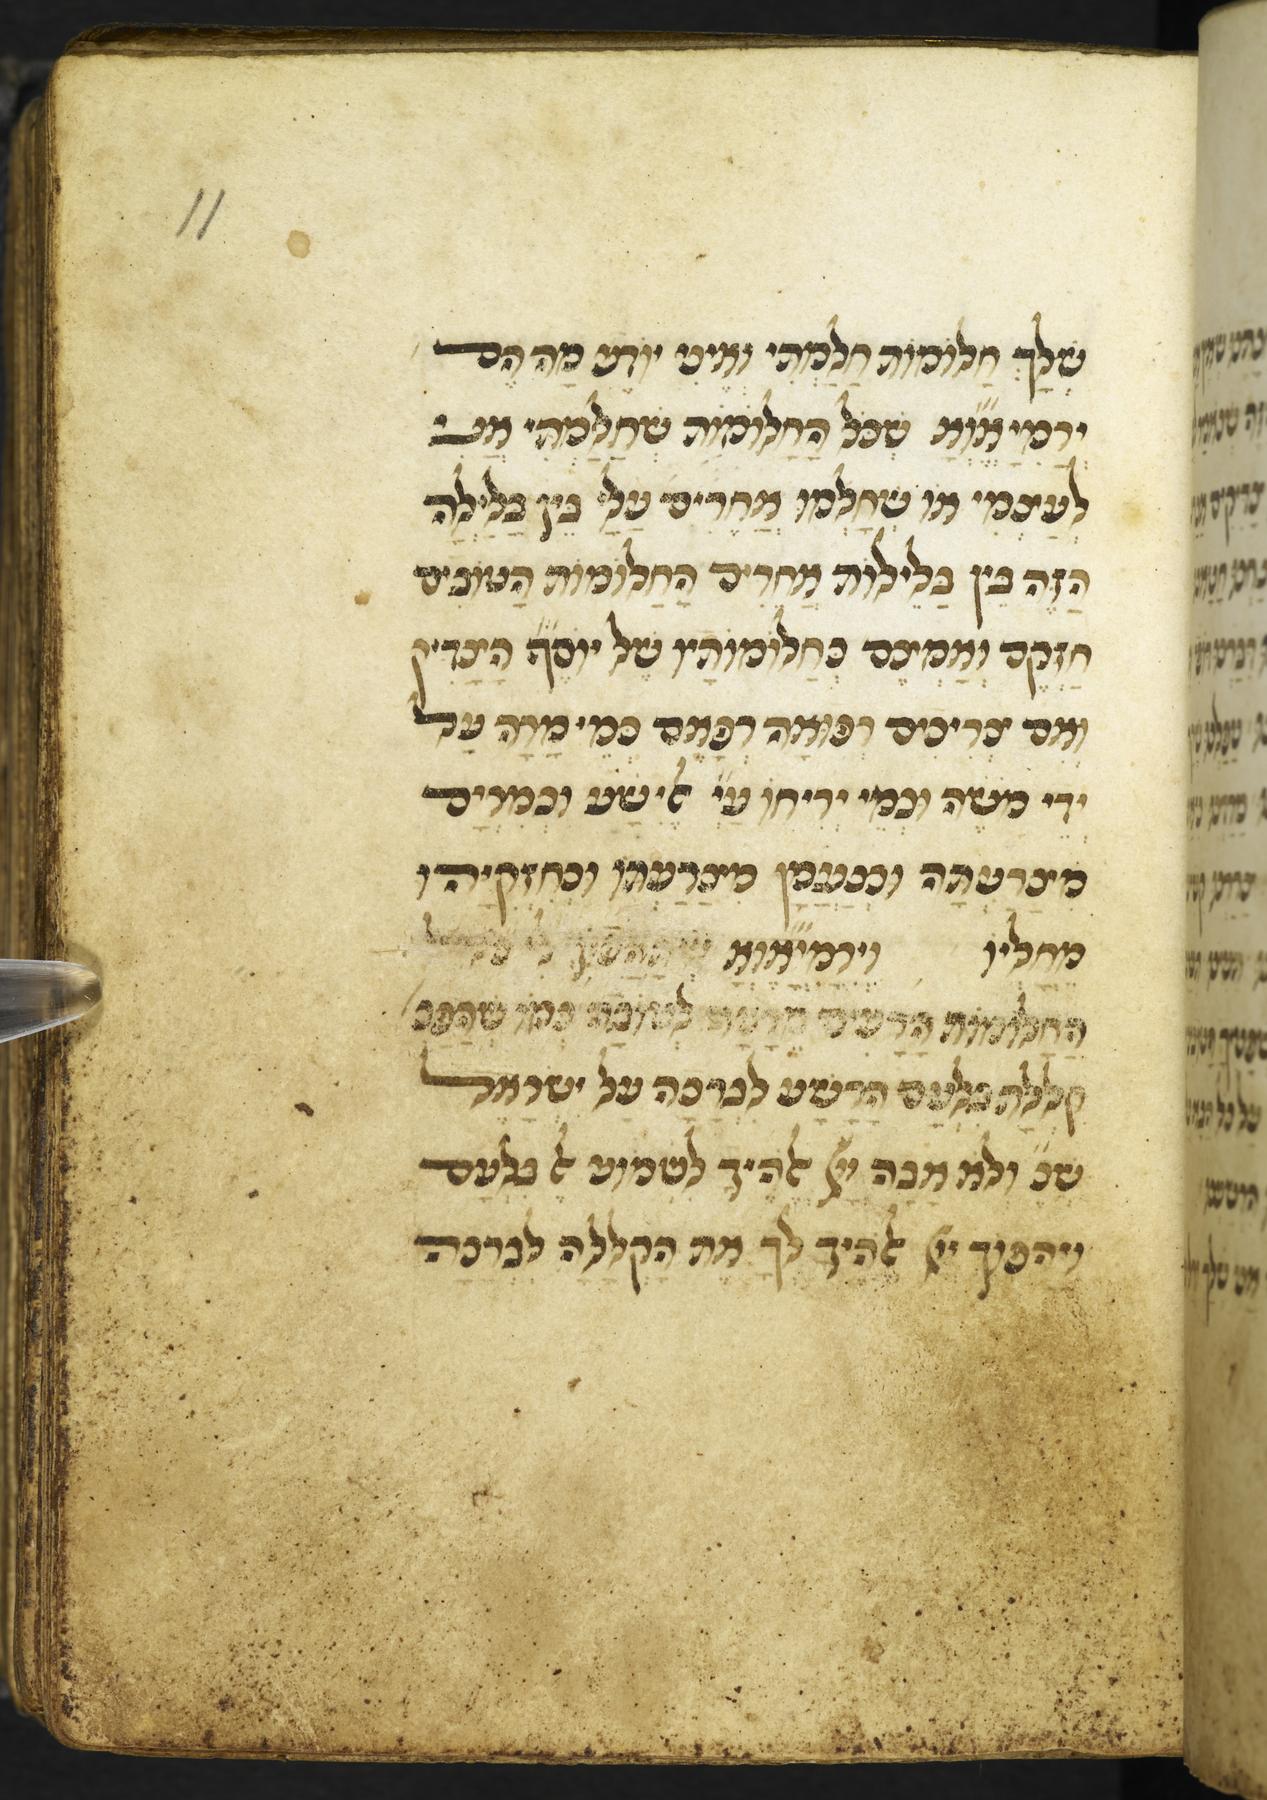 11
שֶׁלָּךְ חֲלוֹמוֹת חָלַמְתִּי וְאֵינִי יוֹדֵעַ מָה הֵם
ירמי״אוא שֶׁכָּל הַחֲלוֹמוֹת שֶׁחָלַמְתִּי אֲנִי
לְעַצְמִי אוֹ שֶׁחָלְמוּ אֲחֵרִים עָלַי בֵּין בַּלַּיְלָה
הַזֶּה בֵּין בַּלֵּילוֹת אֲחֵרִים הַחֲלוֹמוֹת הַטּוֹבִים
חַזְּקֵם וְאַמְּצֵם כַּחֲלוֹמוֹתָיו שֶׁל יוֹסֵף הַצַּדִּיק
וְאִם צְרִיכִים רְפוּאָה רְפָאֵם כְּמֵי מָרָה עַל
יְדֵי מֹשֶׁה וּכְמֵי יְרִיחוֹ ע״י אֱלִישָׁע וּכְמִרְיָם
מִצָּרַעְתָּהּ וּכְנַעֲמָן מִצָּרַעְתּוֹ וּכְחִזְקִיָּהוּ
מחליו וירמי״אוא
הַחֲלוֹמוֹת הָרָעִים מֵרָעָה לְטוֹבָה כְּמוֹ שֶׁהָפַכְ
קִלְלַת בִּלְעָם הָרָשָׁע לִבְרָכָה עַל ישראל
שנ׳ ולא אבה יי׳ אלהיך לשמוע אל בלעם
ויהפוך יי׳ אלהיך לך את הקללה לברכה